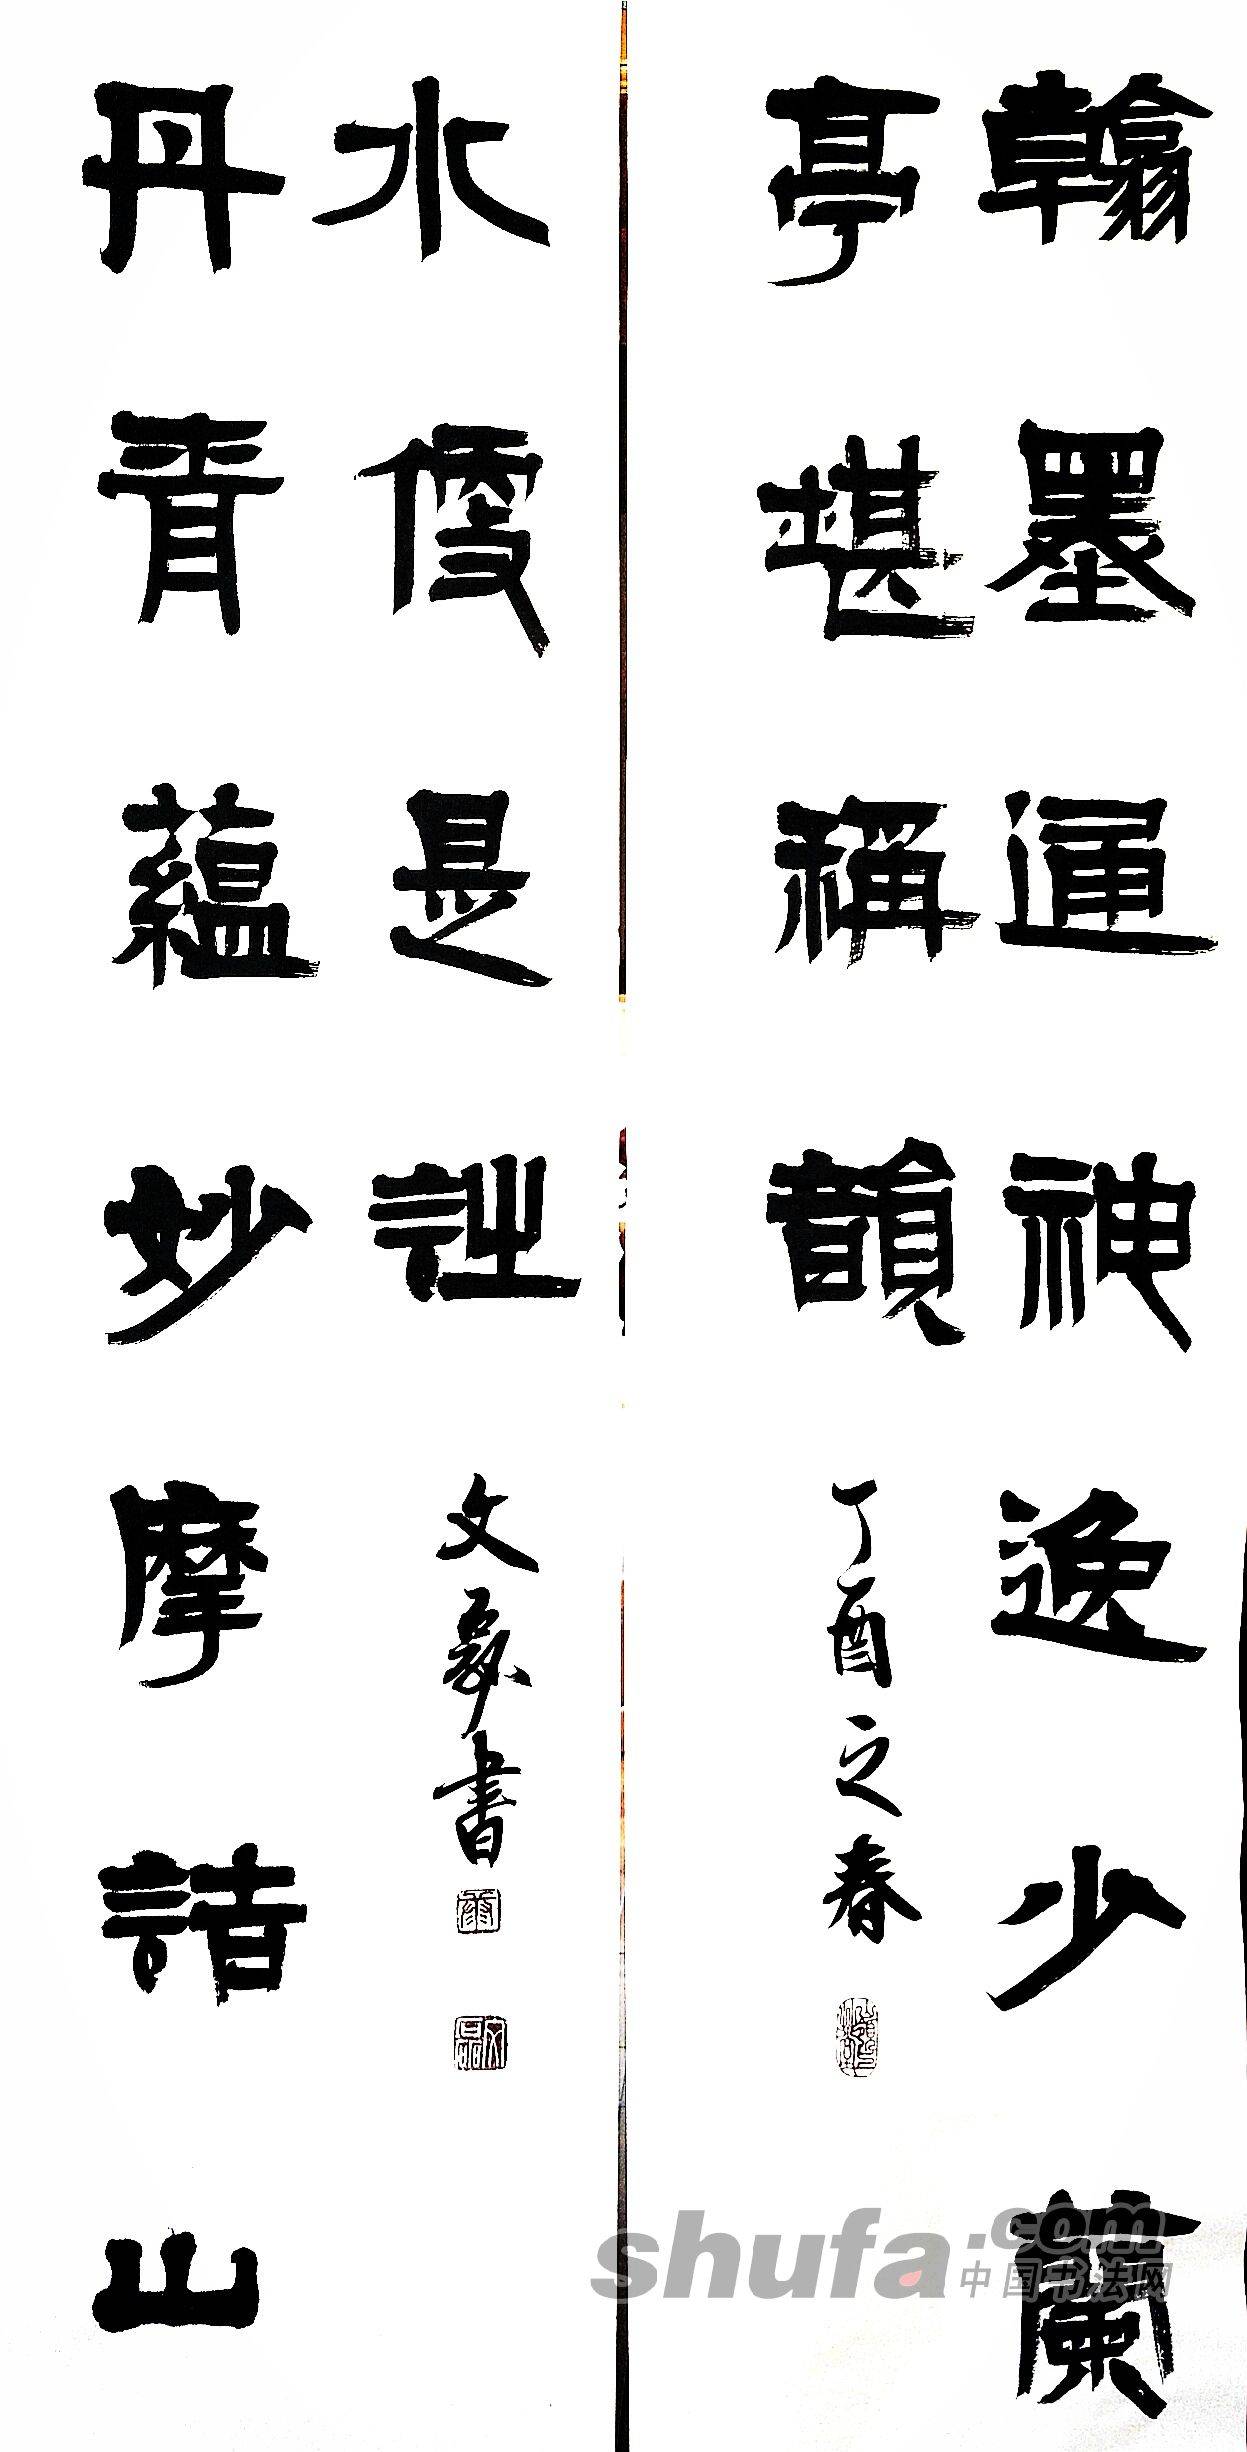 翰墨通神逸少蘭
亭堪稱韻
丁酉之春
丹青蘊妙摩詰山
水便是詩
文 書
shufa.com
中国书法网